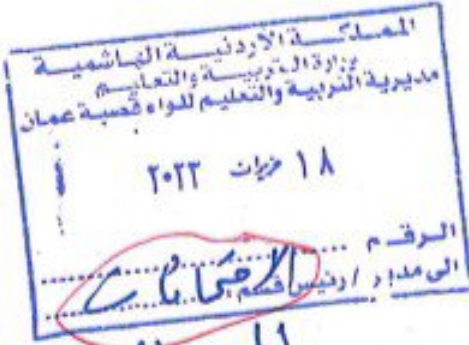 المملكة الأردنية الهاشمية
وزارة التربية والتعليم
مديرية التربية والتعليم للواء قصبة عمان
١٨ حزيران ٢٠٢٢
الرقم ..............
الى مدير / رئيس قسم الامتحانات